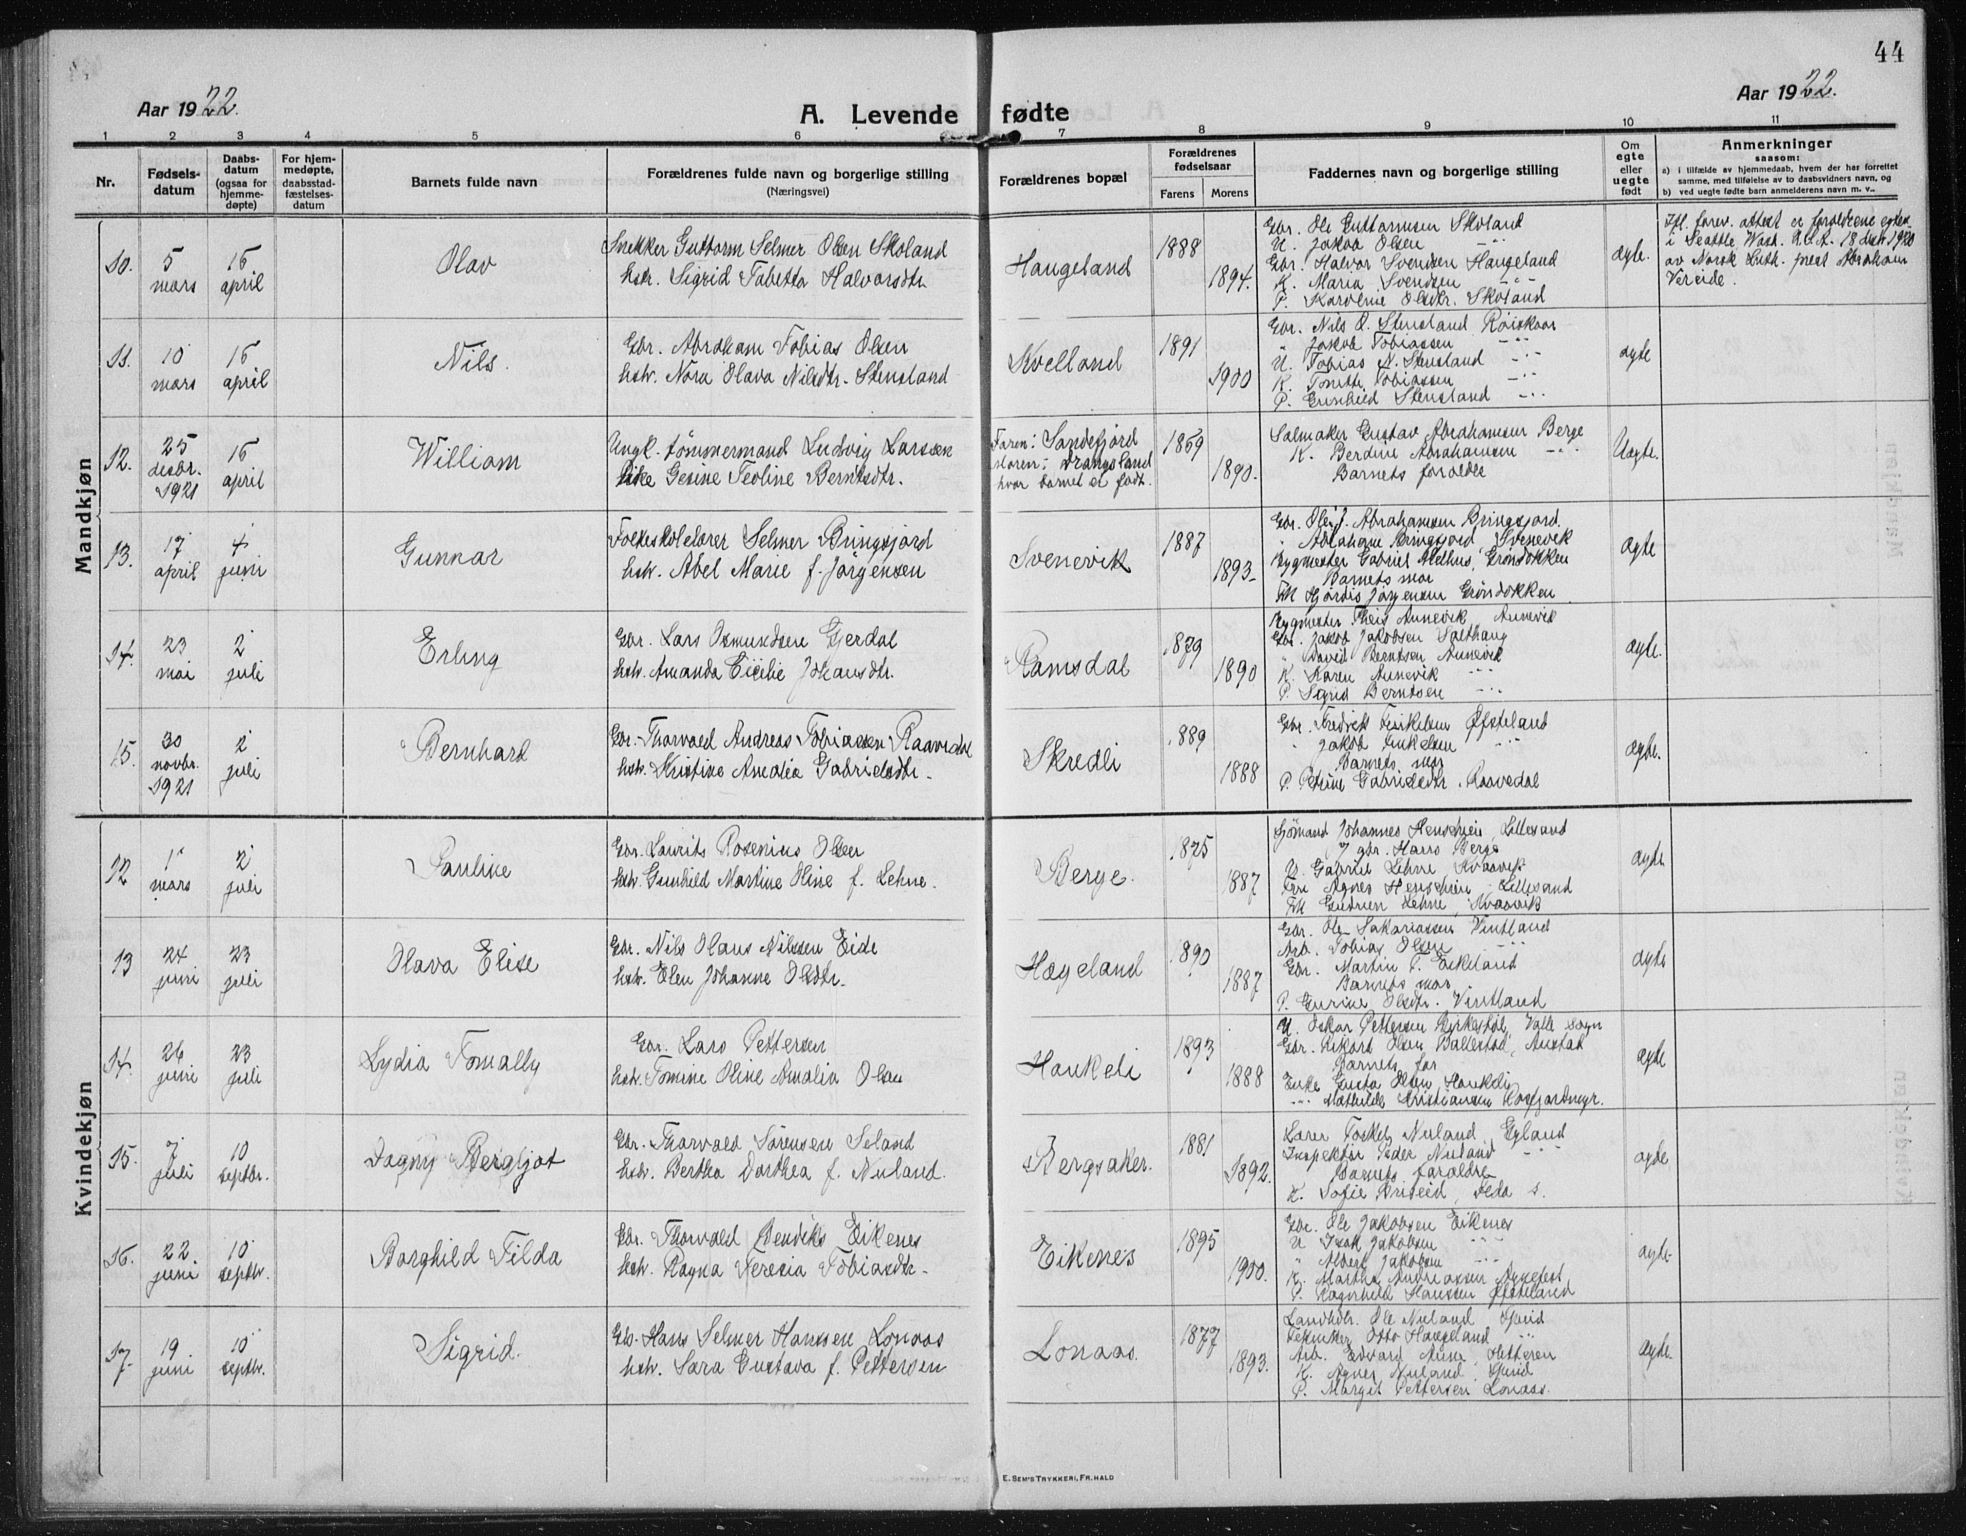 44
Aar 1922.
Aar 1922.
A. Levende fødte
1 2 3 4 5 6 7 8 9 10 11
Nr.
Fødsels-
datum
Daabs-
datum
(ogsaa for
hjemme-
døpte)
For hjem-
medøpte,
daabsstad-
fæstelses-
datum
Barnets fulde navn
Forældrenes fulde navn og borgerlige stilling
(Næringsvei)
Forældrenes bopæl
Forældrenes
fødselsaar
Farens Morens
Faddernes navn og borgerlige stilling
Om
egte
eller
uegte
født
Anmerkninger
saasom:
a) i tilfælde av hjemmedaab, hvem der har forrettet
samme, med tilføielse av to daabsvidners navn, og
b) ved uegte fødte barn anmelderens navn m. v..
Mandkjøn
10.
5
mars
16
april
Olav
Snekker Guttorm Selmer Olsen Skoland
hstr. Sigrid Tabetta Halvorsdtr.
Haugeland
1888
1894.
Gbr. Ole Guttormsen Skoland
U. Jakob Olsen -"-
Gbr. Halvor Svendsen Haugeland
K. Maria Svendsen -"-
P. Karoline Olsdtr. Skoland
ægte.
Ifl. forev. attest er forældrene egtev.
i Seattle Wash. U.S.A. 18 dec 1920
av Norsk Luth. prest Abraham
Vereide.
11.
10
mars
16
april
Nils.
Gbr. Abraham Tobias Olsen
hstr. Nora Olava Nilsdtr. Stensland
Kvelland
1891
1900
Gbr. Nils O. Stensland Røiskaar
" Jakob Tobiassen -"-
U. Tobias N. Stensland -"-
K. Tonette Tobiassen -"-
P. Gunhild Stensland -"-
ægte
12.
25
desbr.
1921
16
april
William
Ungk. tømmermand Ludvig Larsen
Pike Gesine Teoline Berntsdtr.
Faren: Sandefjord
Moren: Drangsland
hvor barnet er født.
1869
1890.
Salmaker Gustav Abrahamsen Berge
K. Berdine Abrahamsen -"-
Barnets forældre
Uegte.
13.
17
april
4
juni
Gunnar
Folkeskolelærer Selmer Bringsjord
hstr. Abel Marie f. Jørgensen
Svenevik
1887
1893
Gbr. Ole J. Abrahamsen Bringsjord.
" Abraham Bringsjord Svenevik
Bygmester Gabriel Melhus, Grøndokken
Barnets mor
Frk Hjørdis Jørgensen Grøndokken
ægte
14.
23
mai
2
juli
Erling
Gbr. Lars Osmundsen Gjerdal
hstr. Amanda Cicilie Johansdtr.
Ramsdal
1879
1890
Bygmester Theis Aunevik Aunevik
Gbr. Jakob Jakobsen Salthaug
" David Berntsen Aunevik
K. Karen Aunevik -"-
P. Signe Berntsen -"-
ægte.
15.
30
novbr.
1921
2
juli
Bernhard
Gbr. Thorvald Andreas Tobiassen Raavedal
hstr. Kristine Amalia Gabrielsdtr.
Skredli
1889
1888
Gbr. Fredrik Terkelsen Øfsteland
" Jakob Terkelsen -"-
Barnets mor
P. Petrine Gabrielsdtr. Raavedal
ægte.
Kvindekjøn
12
1
mars
2
juli
Pauline
Gbr. Laurits Rosenius Olsen
hstr. Gunhild Martine Oline f. Lehne.
Berge.
1875
1887
Sjømand Johannes Henschien, Lillesand
7 gbr. Hans Berge
U. Gabriel Lehne Kvaavik
Fru Agnes Henschien Lillesand
Frk Gudrun Lehne, Kvaavik
ægte
13
24
juni
23
juli
Olava Elise
Gbr. Nils Olaus Nilssen Eide
hstr. Elen Johanne Olsdtr.
Hægeland
1890
1887
Gbr. Ole Sakariassen Vintland
Arb. Tobias Olsen -"-
Gbr. Martin T. Eikeland
Barnets mor
P. Gurine Olsdtr. Vintland
ægte
14.
26
juni
23
juli
Lydia Tomally
Gbr. Lars Pettersen
hstr. Tomine Oline Amalia Olsen
Haukeli
1893
1888
U. Oskar Pettersen Birkestøl, Valle sogn
Gbr. Rikard Olsen Ballestad, Austad
Barnets far
Enke Gusta Olsen Haukeli
" Mathilde Kristiansen Rosfjordmyr.
ægte
15.
7
juli
10
septbr.
Dagny Bergljot
Gbr. Thorvald Sørensen Seland
hstr. Bertha Dorthea f. Nuland.
Bergsaker.
1881
1892.
Lærer Torkel Nuland, Egland
Inspektør Peder Nuland -"-
Barnets forældre
K. Sofie Briseid, Feda s.
ægte
16.
22
juni
10
septbr.
Borghild Tilda
Gbr. Thorvald Bendiks Eikenes
hstr. Ragna Teresia Tobiasdtr.
Eikenes
1895
1900.
Gbr. Ole Jakobsen Eikenes
U Isak Jakobsen -"-
" Albert Jakobsen -"-
K. Martha Andreassen
P. Ragnhild Hansen Øfsteland
ægte.
17.
19
juni
10
septbr.
Sigrid.
Gbr. Hans Selmer Hansen Lonaas
hstr. Sara Gustava f. Pettersen
Lonaas.
1877
1893.
Landhdlr. Ole Nuland Kvid
Tekniker Otto Haugeland "
Arb. Edvard Aune, Hetteren
K. Agnes Nuland, Kvid
P. Margit Pettersen Lonaas.
ægte.
E. SEM'S TRYKKERI, FR. HALD